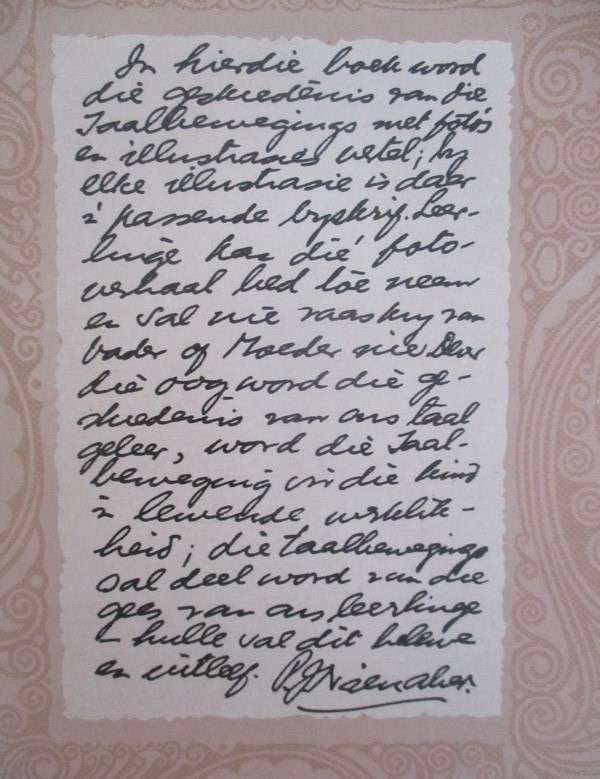 In hierdie boek word
die geskiedenis van die
Taalbewegings met foto's
en illustrasies vertel; by
elke illustrasie is daar
'n passende byskrif. Leer-
linge kan dié foto-
verhaal bed toe neem
en sal nie raas kry van
Vader of Moeder nie. Deur
die oog word die ge-
skiedenis van ons taal
geleer, word die Taal-
beweging vir die kind
'n lewende werklik-
heid; die taalbewegings
sal deel word van die
gees van ons leerlinge
– hulle sal dit belewe
en uitleef. P.J. Nienaber.